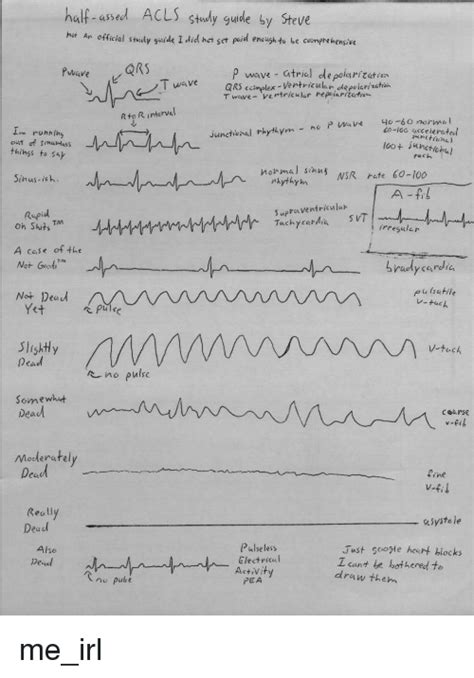 half-assed ACLS study guide by Steve
Not An official study guide I did not get paid enough to be comprehensive
P wave
QRS
T wave
R to R interval
P wave - atrial depolarization
QRS complex - Ventricular depolarization
T wave - Ventricular repolarization
I'm running out of smartass things to say
Junctional rhythym - no P wave
40-60 normal
60-100 accelerated junctional
100+ junctional tach
Sinus-ish.
normal sinus rhythym
NSR rate 60-100
Rapid Oh Shits TM
Supraventricular Tachycardia
SVT
A-fib
irregular
A case of the Not Goods TM
bradycardia
Not Dead Yet
pulse
pulsatile v-tach
Slightly Dead
no pulse
V-tach
Somewhat Dead
coarse v-fib
Moderately Dead
fine V-fib
Really Dead
asystole
Also Dead
no pulse
Pulseless Electrical Activity PEA
Just google heart blocks
I cant be bothered to draw them
me_irl